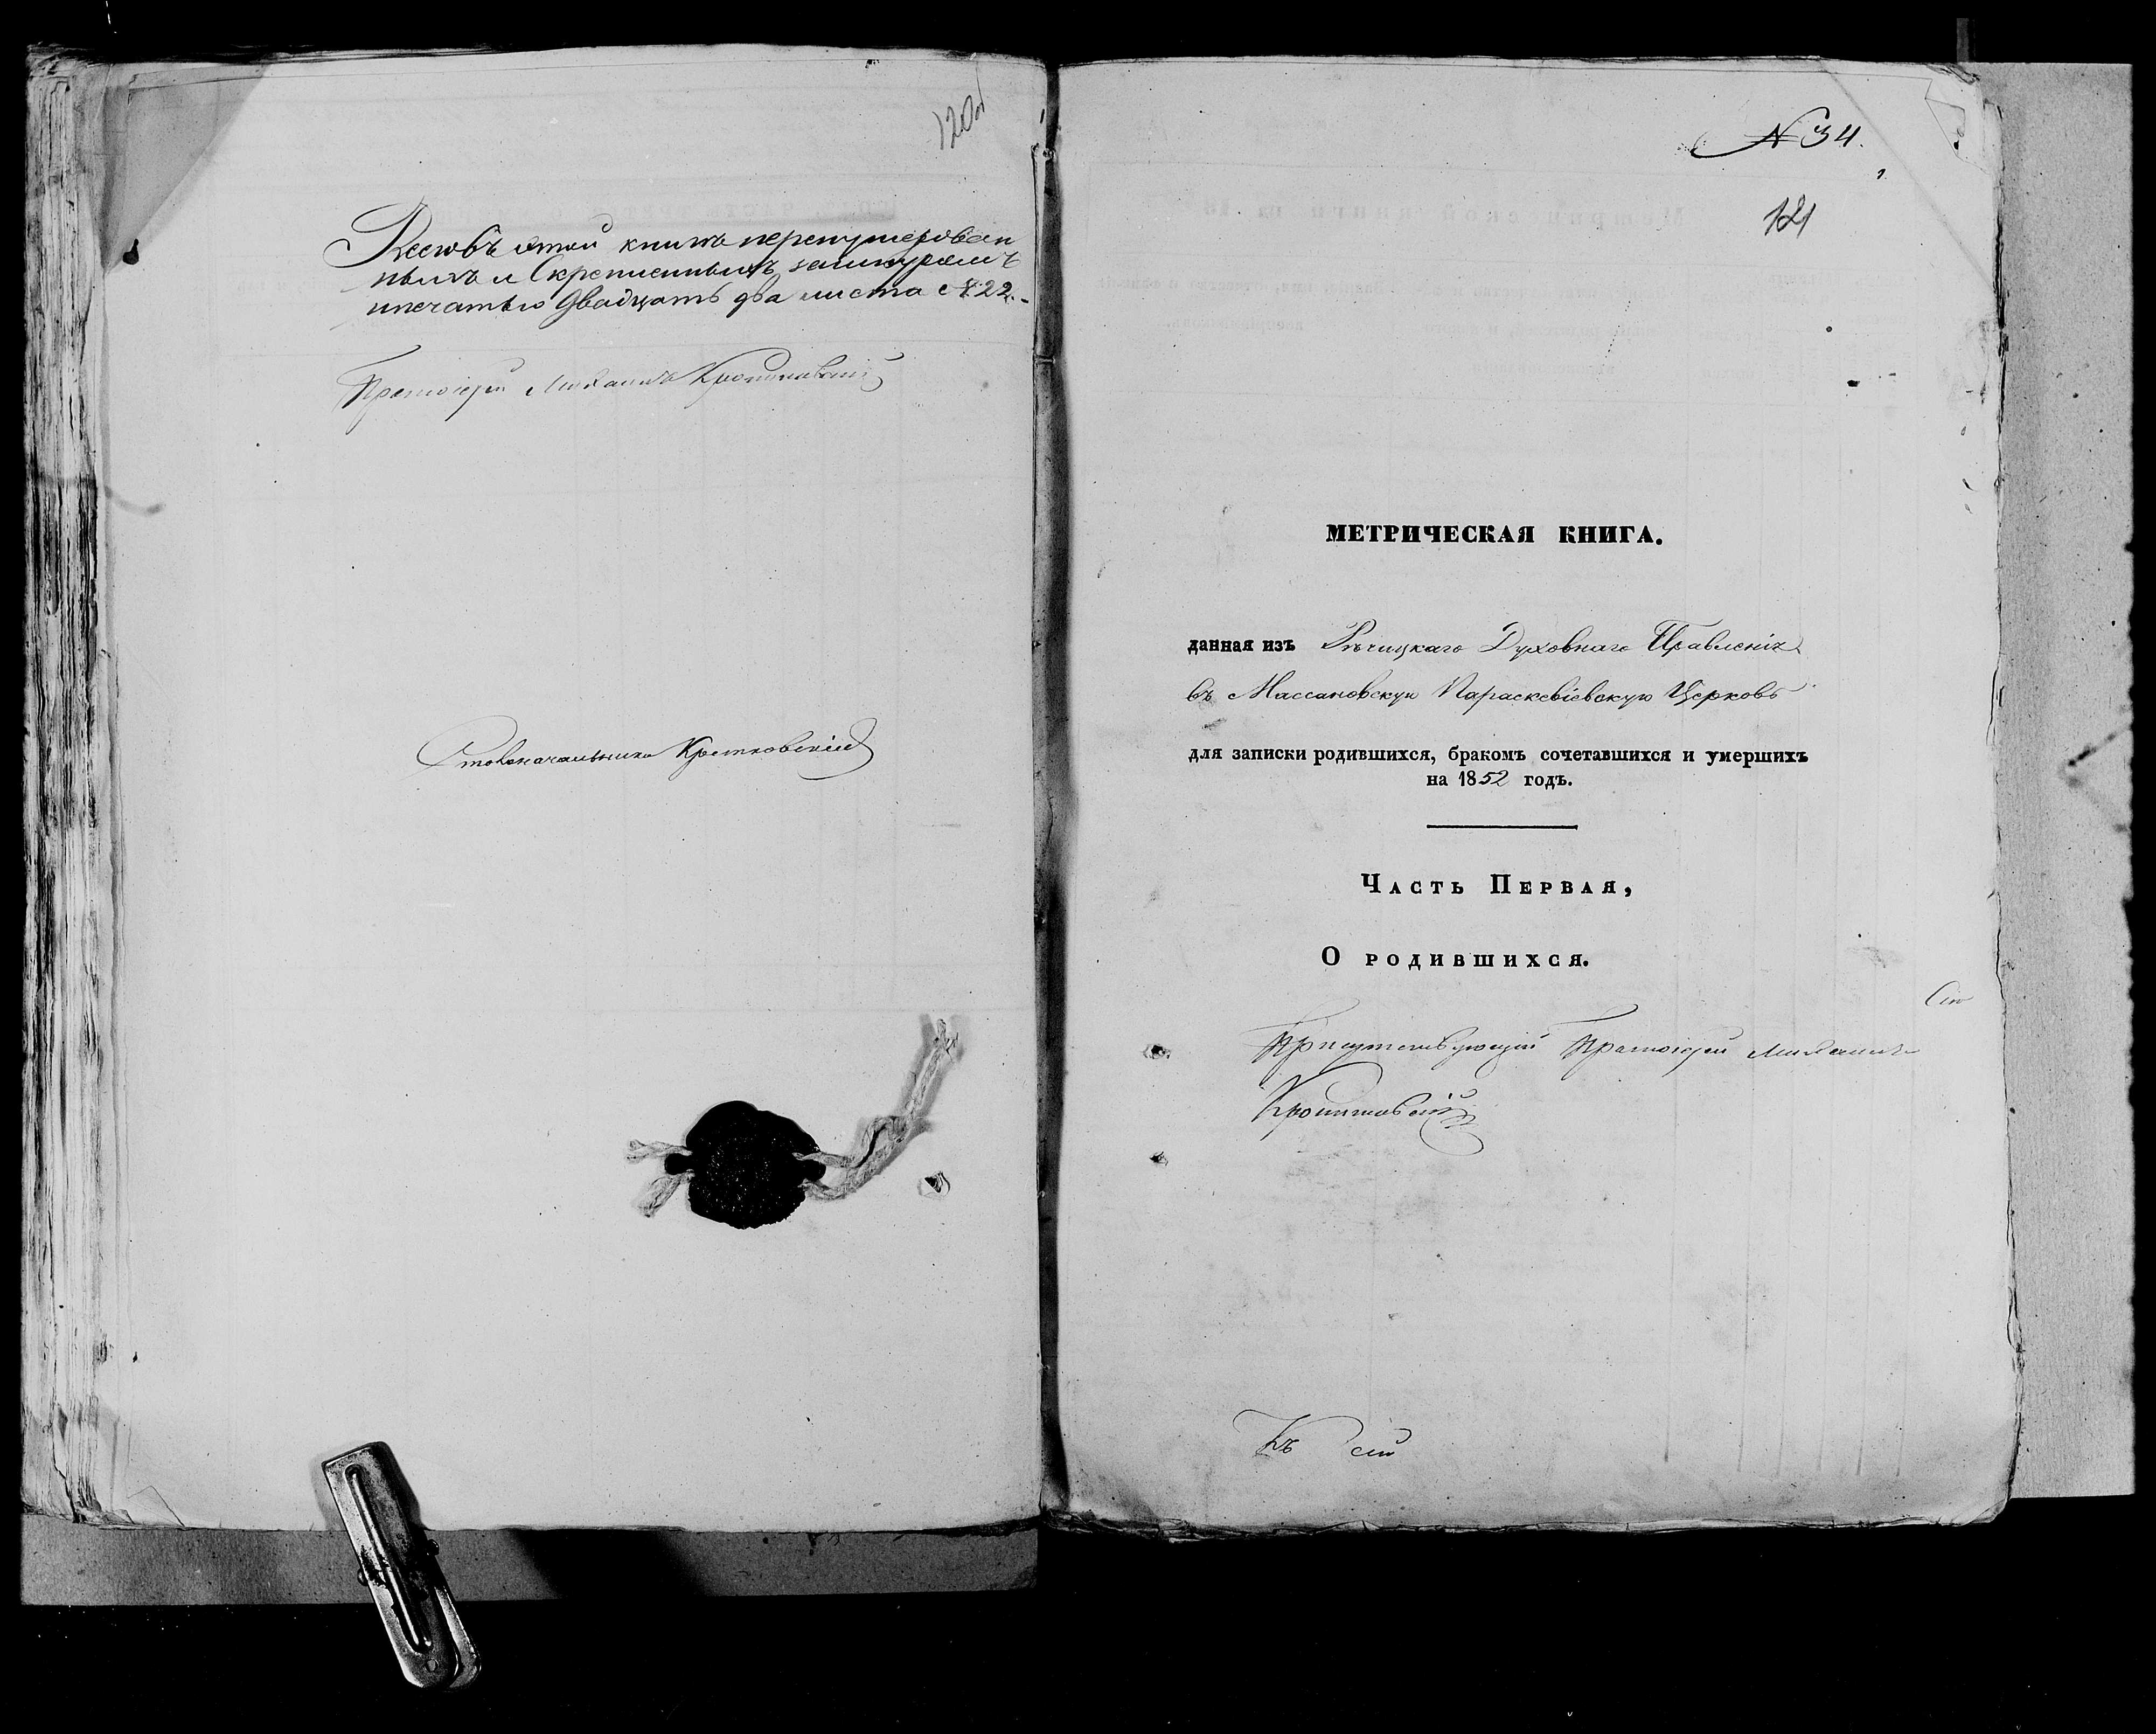 120об
Всего въ этой книгѣ перенумерован
ныхъ и Скрепленныхъ зашнуромъ
ипечатью Двадцать два листа №22.-
Протоіерей Михаилъ Кропиневскій
Столоначальникъ
N 34.
121
МЕТРИЧЕСКАЯ КНИГА.
данная изъ Рѣчицкаго Духовнаго Правленія
въ Массановскую Параскевіевскую Церковь
для записки родившихся, бракомъ сочетавшихся и умершихъ
на 1852 годъ.
Часть Первая,
О родившихся.
Сію
Присутствующій Протоіерей Михаилъ
Къ сей